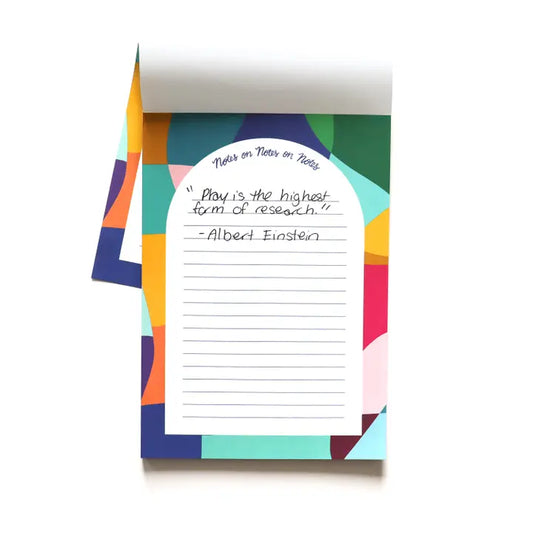 Notes on Notes on Notes
"Play is the highest
form of research."
- Albert Einstein